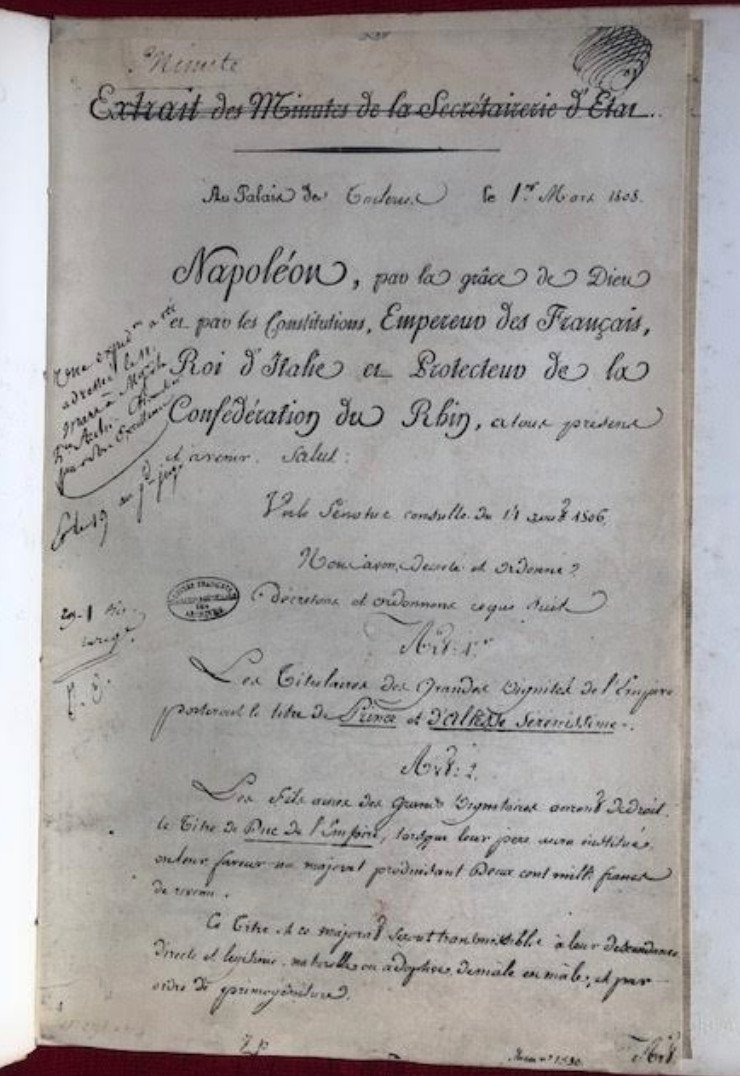 Minute
Extrait des Minutes de la Secrétairerie d'Etat.
Au Palais des Tuileries le 1er Mars 1808.
Napoléon, par la grâce de Dieu
et par les Constitutions, Empereur des Français,
Roi d'Italie et Protecteur de la
Confédération du Rhin, à tous présens
et à venir. Salut:
Vu le Sénatus consulte du 14 août 1806,
Nous avons décrété et ordonné,
décretons et ordonnons ce qui suit
Art: 1er
Les Titulaires des Grandes Dignités de l'Empire
porteront le titre de Prince et d'altesse Sérénissime.
Art: 2.
Les Fils ainés des grands Dignitaires auront de droit
le Titre de Duc de l'Empire, lorsque leur père aura institué
en leur faveur un majorat produisant Deux cent mille francs
de revenu.
Ce Titre et ce majorat seront transmissibles à leur descendance
directe et légitime, naturelle ou adoptive, de mâle en mâle, et par
ordre de primogéniture.
Art